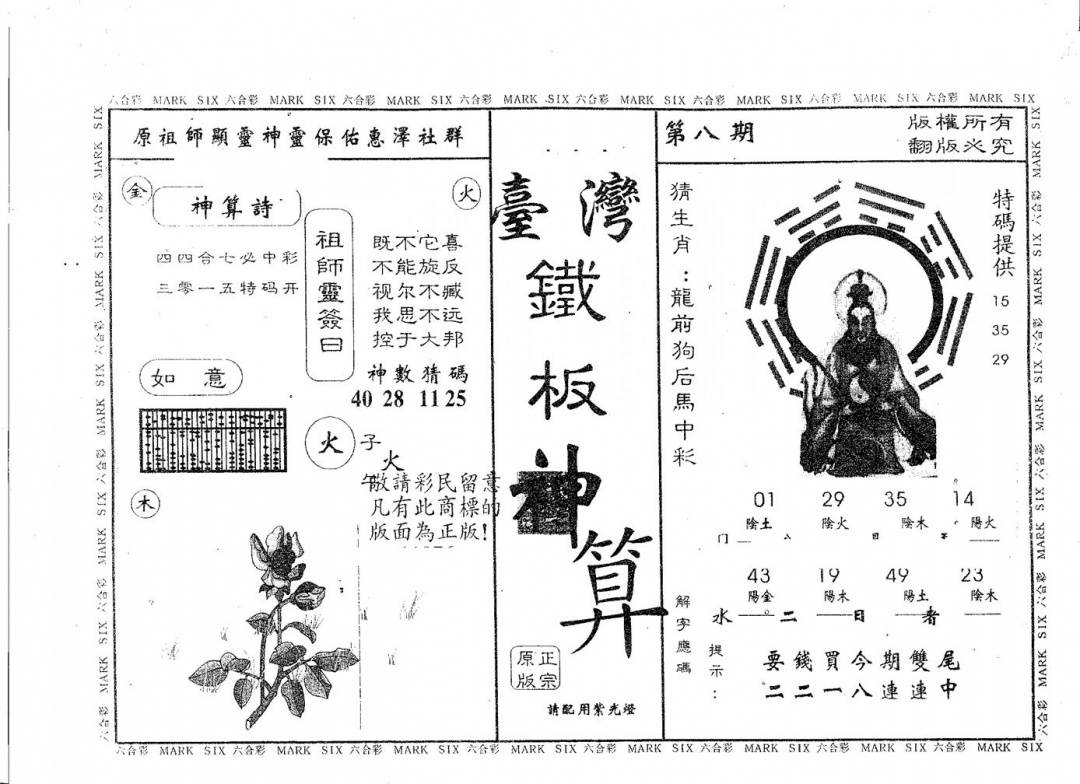 六合彩 MARK SIX 六合彩 MARK SIX 六合彩 MARK SIX 六合彩 MARK SIX 六合彩 MARK SIX 六合彩 MARK SIX 六合彩 MARK SIX 六合彩 MARK SIX
原祖師顯靈神靈保佑惠澤社群
金
神算詩
火
四四合七必中彩
三零一五特码开
祖師靈簽曰
既不它喜
不能旋反
视尔不臧
我思不远
控于大邦
神數猜碼
40 28 11 25
如意
火
子
火
午
敬請彩民留意
凡有此商標的
版面為正版!
木
臺灣
鐵
板
神
算
正宗
原版
請配用紫光燈
第八期
版權所有
翻版必究
猜生肖:龍前狗后馬中彩
特碼提供
15
35
29
01 29 35 14
陰土 陰火 陰木 陽火
43 19 49 23
陽金 陽木 陽土 陰木
水 二 日 者
解字應碼
提示:
要錢買今期雙尾
二二一八連連中
六合彩 MARK SIX 六合彩 MARK SIX 六合彩 MARK SIX 六合彩 MARK SIX 六合彩 MARK SIX 六合彩 MARK SIX 六合彩 MARK SIX 六合彩 MARK SIX